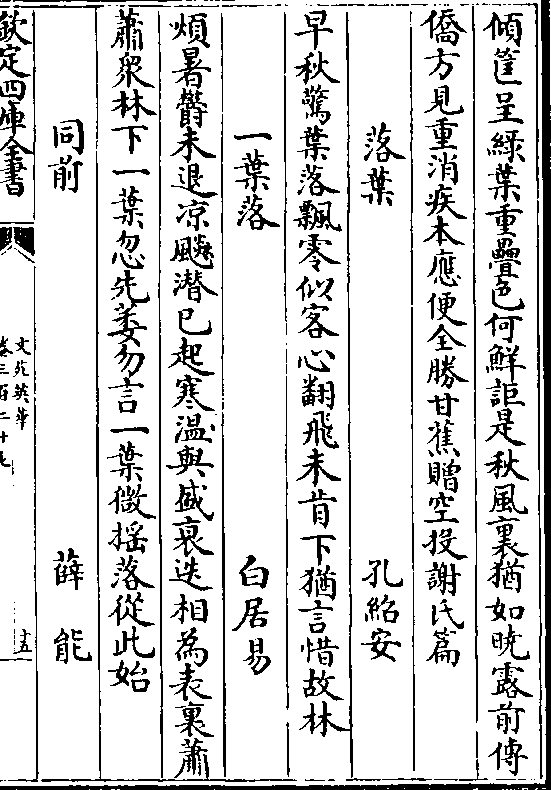 傾筐呈緑葉重疊色何鮮詎是秋風裏猶如曉露前傳
僑方見重消疾本應便全勝甘蕉贈空投謝氏篇
落葉　孔紹安
早秋驚葉落飄零似客心翻飛未肯下猶言惜故林
一葉落　白居易
煩暑鬱未退凉飈潛已起寒温與盛衰迭相為表裏蕭
蕭衆林下一葉忽先委勿言一葉微揺落從此始
同前　薛能
欽定四庫全書
文苑英華
卷三百二十七
十五